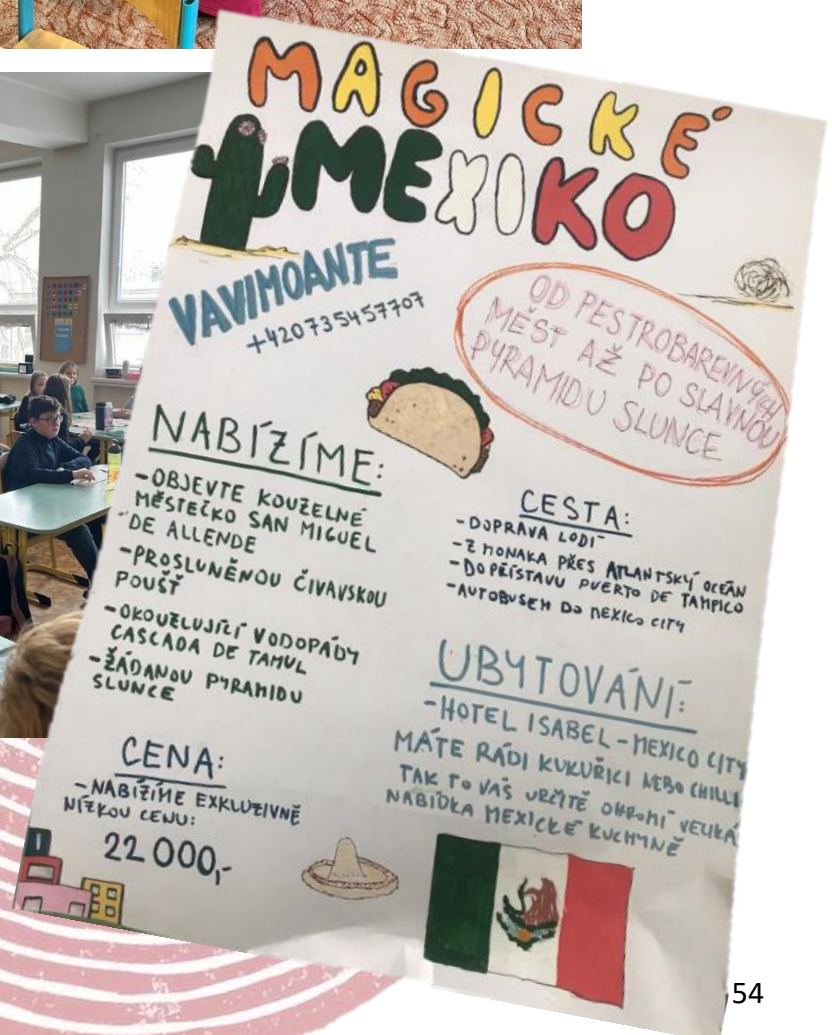 MAGICKÉ
MEXIKO
VAVIMOANTE
+420735457707
OD PESTROBAREVNÝCH
MĚST AŽ PO SLAVNOU
PYRAMIDU SLUNCE
NABÍZÍME:
-OBJEVTE KOUZELNÉ
MĚSTEČKO SAN MIGUEL
DE ALLENDE
-PROSLUNĚNOU ČIVAVSKOU
POUŠŤ
-OKOUZLUJÍCÍ VODOPÁDY
CASCADA DE TAMUL
-ŽÁDANOU PYRAMIDU
SLUNCE
CESTA:
-DOPRAVA LODÍ
-Z MONAKA PŘES ATLANTSKÝ OCEÁN
-DO PŘÍSTAVU PUERTO DE TAMPICO
-AUTOBUSEM DO MEXICO CITY
UBYTOVÁNÍ:
-HOTEL ISABEL-MEXICO CITY
MÁTE RÁDI KUKUŘICI NEBO CHILLI
TAK TO VÁS URČITĚ OHROMÍ VELIKÁ
NABÍDKA MEXICKÉ KUCHYNĚ
CENA:
-NABÍZÍME EXKLUZIVNĚ
NÍZKOU CENU:
22 000,-
54